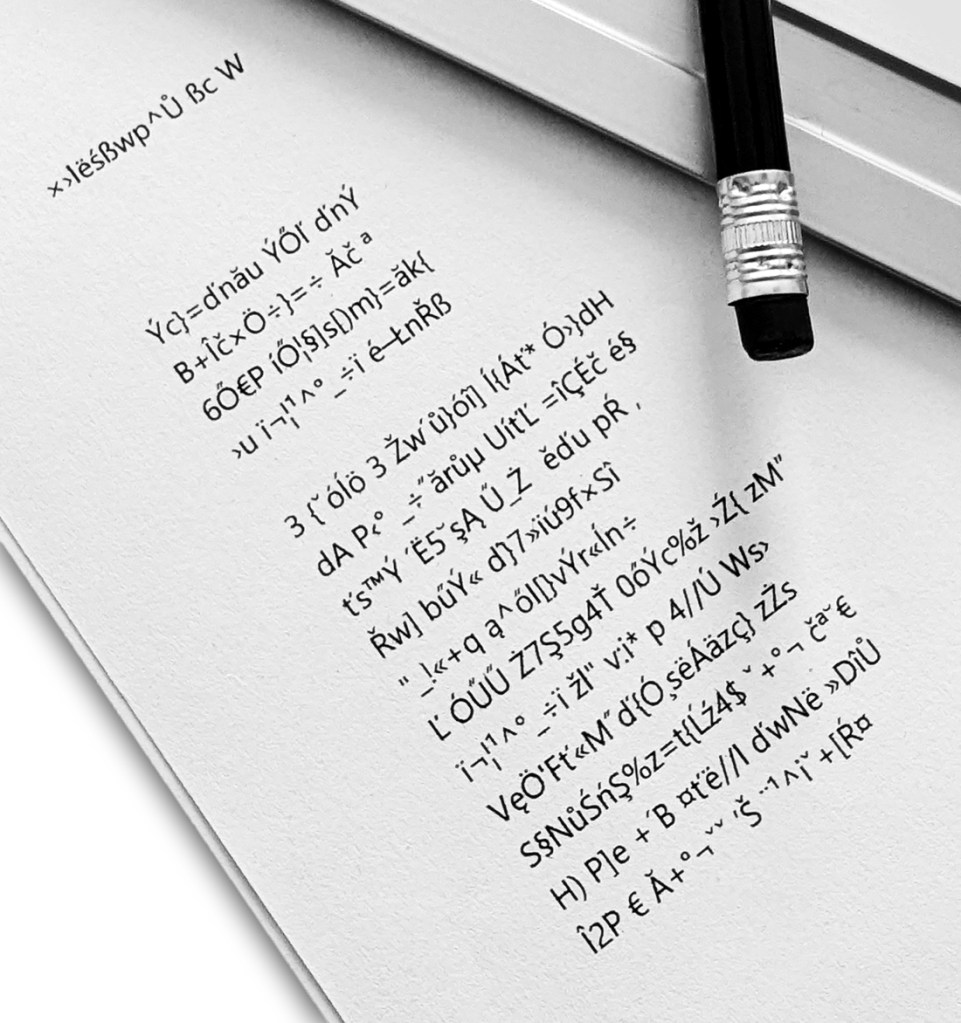 ×›lëśßwp^Ů ßc W
Ýc}=ďnău ÝŐľ ďnÝ
B+Îč×Ö÷}=÷ Ăč ª
6Ő€P íŐ¦§]s[)m}=ăk{
›u ï¬¦¹^° _÷ï é—ŁnŘß
3 {˘óÍö 3 Žw´ů}óî] Í{Áť* Ó›}dH
dA P‹° _÷˝ărůµ UíťĽ =îÇÉč é§
ťs™Ý ´Ë5˘şĄ Ű_Ż ěďu pŔ ,
Řw] bűÝ« d}7»ïú9f×Sî
" _!«+q ą^őI[}vÝr«Ín÷
ľ ÓŰŰ Ż7Ş5g4Ť 0őÝc%ž ›Ź{ zM"
ï¬¦¹^° _÷ï žl" v:i* p 4//Ú Ws›
VęÖ'Fť«M˝ď{Ó¸sëÁäzç} zŻs
S§NůŚńŞ%z=t{Ĺź4$ˇ+°¬ čª˘€
H) P]e +´B ¤ťë//I ďwNë »DîŮ
Î2P € Ă+°¬ˇˇ '˙Š ¨¹^¡ˇ+[Ŕ¤